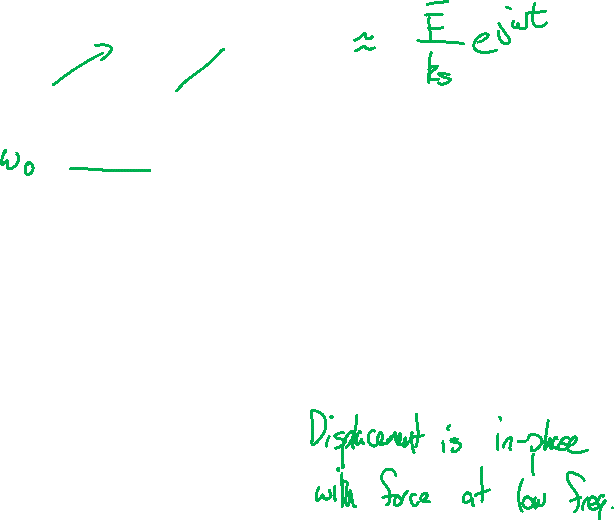 ≈ F̅/ks e^jωt
ω₀
Displacement is in-phase
with force at low freq.